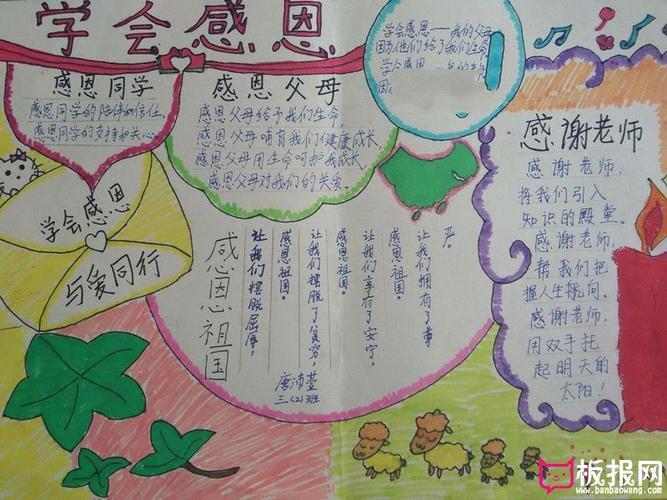 学会感恩
感恩同学
感恩同学的陪伴和信任,
感恩同学的支持和关心。
感恩父母
感恩父母给予我们生命,
感恩父母哺育我们健康成长,
感恩父母用生命呵护我成长,
感恩父母对我们的关爱。
学会感恩——我的父母
因为他们给了我们生命
学会感恩
学会感恩
与爱同行
感恩祖国
让我们摆脱屈辱,
感恩祖国。
让我们摆脱了贫穷,
感恩祖国。
让我们享有了安宁,
感恩祖国。
让我们拥有了尊
严。
唐沛萱
三(2)班
感谢老师
感谢老师,
将我们引入
知识的殿堂。
感谢老师,
帮我们把
握人生航向。
感谢老师,
用双手托
起明天的
太阳!
板报网
www.banbaowang.com